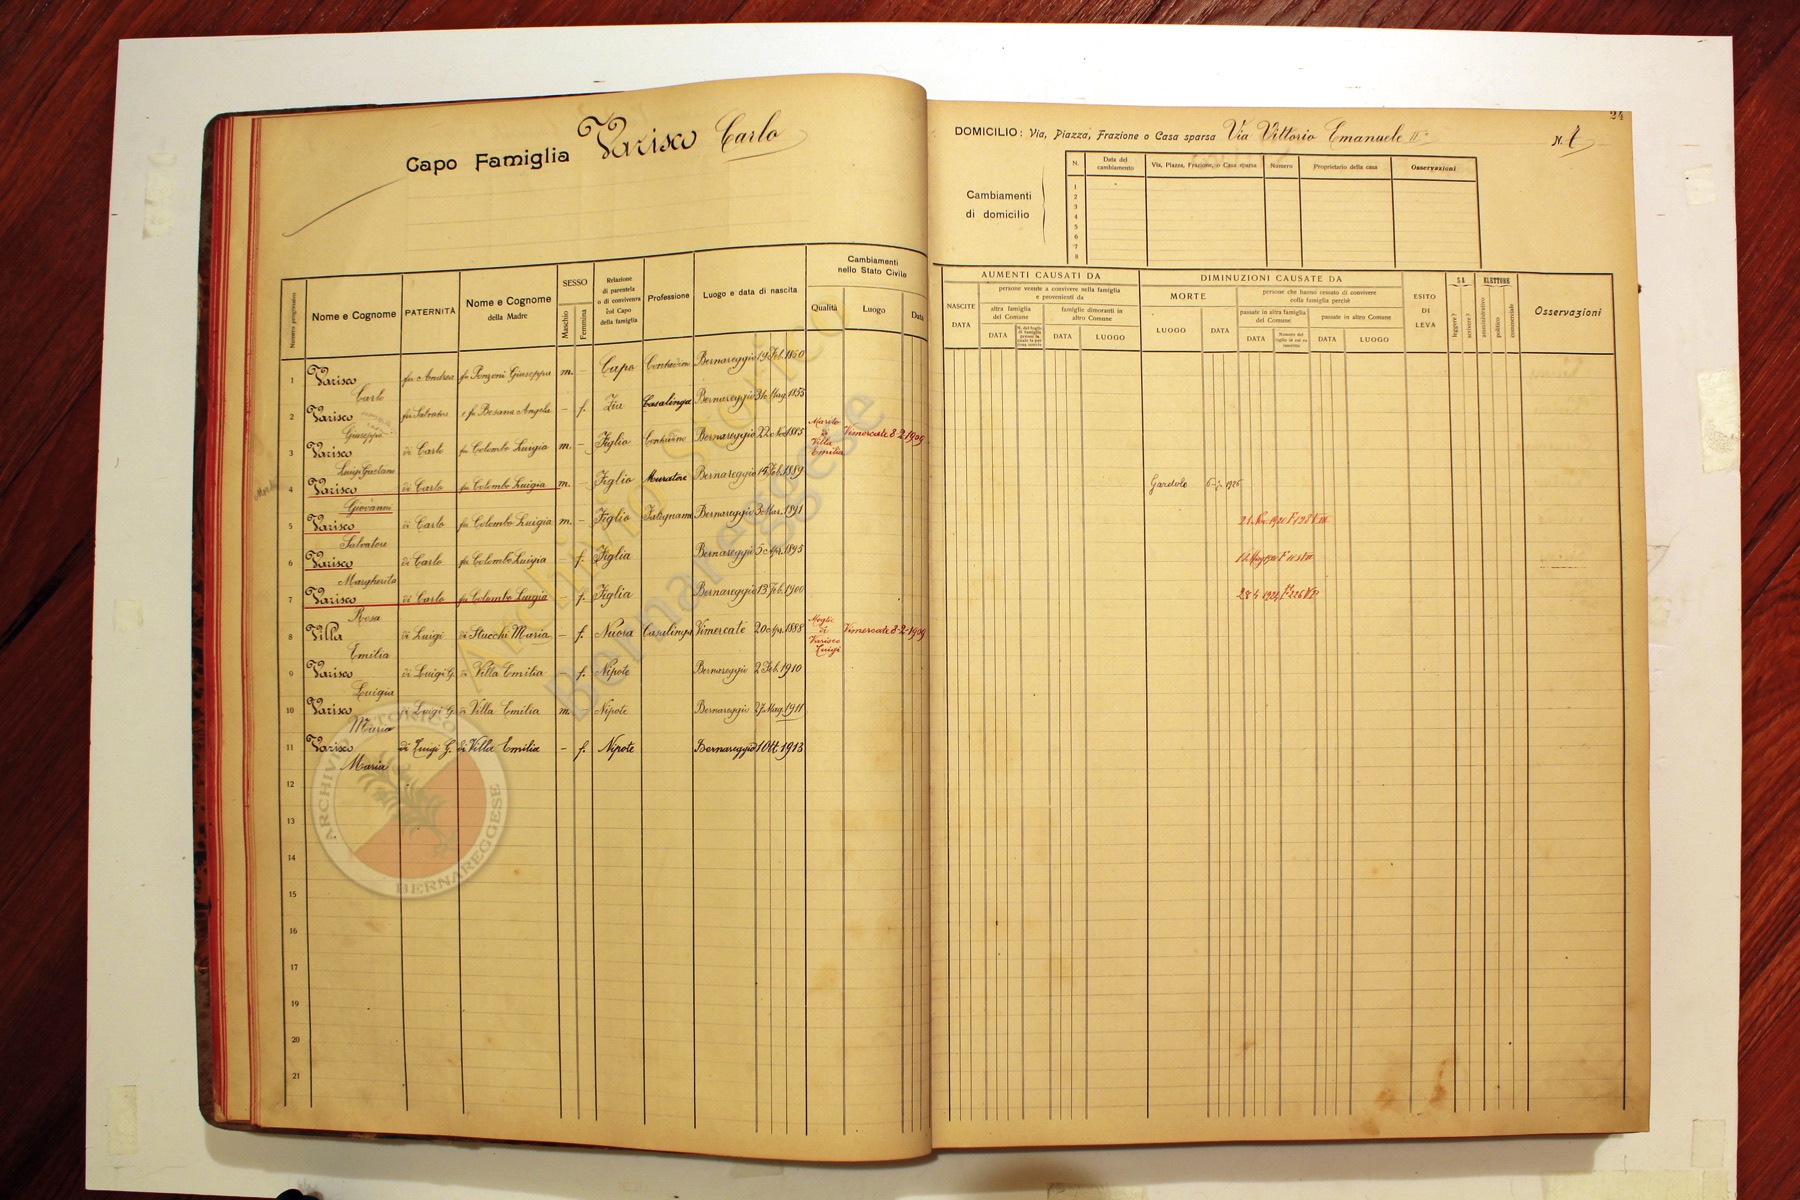 24
Capo Famiglia Varisco Carlo
DOMICILIO: Via, Piazza, Frazione o Casa sparsa Via Vittorio Emanuele II°
N.
Cambiamenti
di domicilio
N. Data del cambiamento Via, Piazza, Frazione, o Casa sparsa Numero Proprietario della casa Osservazioni
1
2
3
4
5
6
7
8
Numero progressivo
Nome e Cognome
PATERNITÀ
Nome e Cognome
della Madre
SESSO
Maschio
Femmina
Relazione
di parentela
o di convivenza
col Capo
della famiglia
Professione
Luogo e data di nascita
Cambiamenti
nello Stato Civile
Qualità
Luogo
Data
NASCITE
DATA
AUMENTI CAUSATI DA
persone venute a convivere nella famiglia
e provenienti da
altra famiglia
del Comune
famiglie dimoranti in
altro Comune
DATA
DATA
LUOGO
DIMINUZIONI CAUSATE DA
MORTE
LUOGO
DATA
persone che hanno cessato di convivere
colla famiglia perchè
passate in altra famiglia
del Comune
passate in altro Comune
DATA
DATA
LUOGO
ESITO
DI
LEVA
SA
leggere?
scrivere?
ELETTORE
amministrativo
politico
commerciale
Osservazioni
1 Varisco fu Andrea fu Ponzoni Giuseppa m. – Capo Contadino Bernareggio 19 Feb. 1850
Carlo
2 Varisco fu Salvatore e fu Besana Angela – f. Zia Casalinga Bernareggio 31 Mag. 1835
Giuseppa
3 Varisco di Carlo fu Colombo Luigia m. – Figlio Contadino Bernareggio 22 Nov. 1885 Marito di Villa Emilia Vimercate 8-2-1909
Luigi Gaetano
4 Varisco di Carlo fu Colombo Luigia m. – Figlio Muratore Bernareggio 14 Feb. 1889 Gardolo 1926
Giovanni
5 Varisco di Carlo fu Colombo Luigia m. – Figlio Falegname Bernareggio 3 Mar. 1891 21 Nov. 1920 F 198 VIII
Salvatore
6 Varisco di Carlo fu Colombo Luigia – f. Figlia Bernareggio 5 Apr. 1895
Margherita
7 Varisco di Carlo fu Colombo Luigia – f. Figlia Bernareggio 13 Feb. 1900 28 4 1924 F 226 VII
Rosa
8 Villa di Luigi di Stucchi Maria – f. Nuora Casalinga Vimercate 20 Apr. 1888 Moglie di Varisco Luigi Vimercate 8-2-1909
Emilia
9 Varisco di Luigi G. di Villa Emilia – f. Nipote Bernareggio 2 Feb. 1910
Luigia
10 Varisco di Luigi G. di Villa Emilia m. – Nipote Bernareggio 27 Mag. 1911
Mario
11 Varisco di Luigi G. di Villa Emilia – f. Nipote Bernareggio 1 Ott. 1913
Maria
12
13
14
15
16
17
18
19
20
21
Archivio Storico
Bernareggese
ARCHIVIO STORICO
BERNAREGGESE